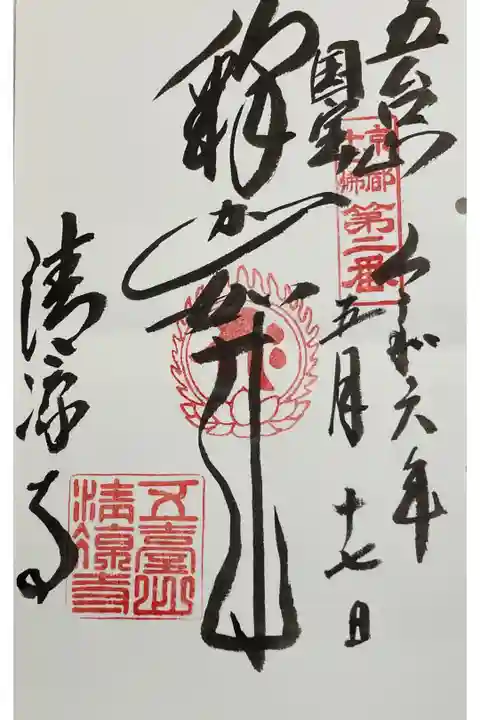 五台山
令和六年
国宝
五月十七日
京都
十三佛
第二番
釋迦如来
清凉寺
五臺山
清凉寺